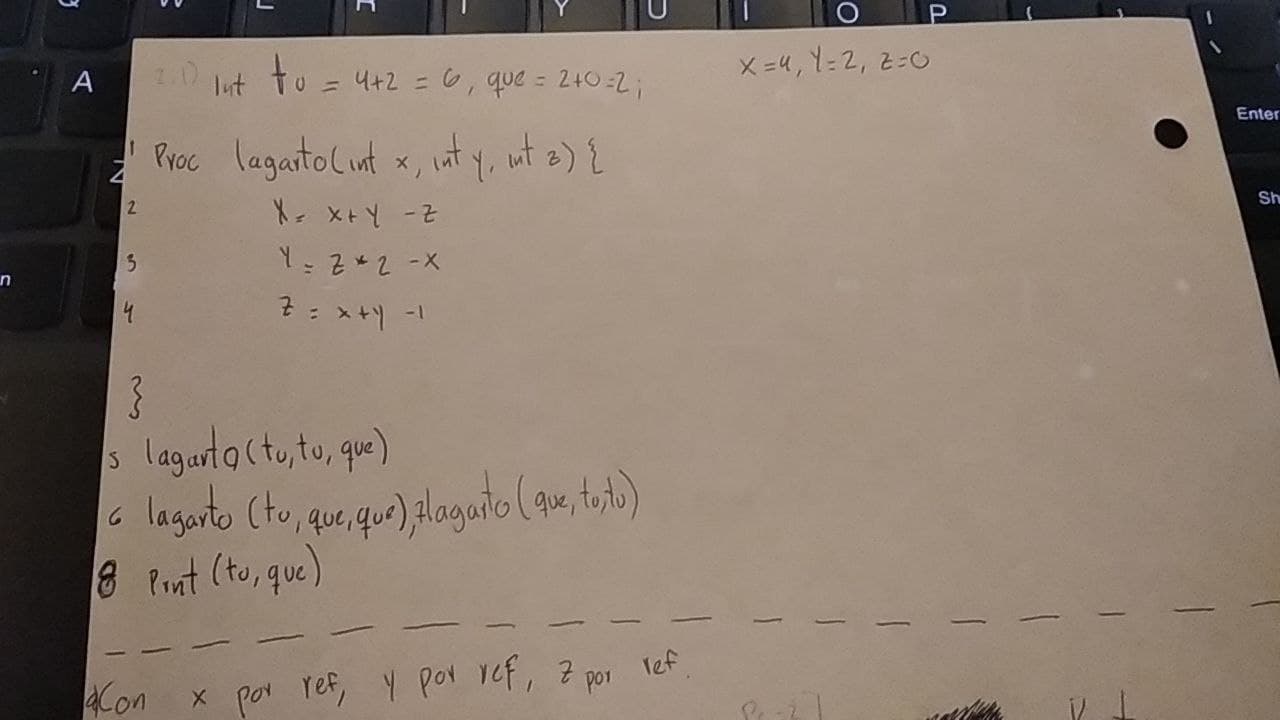 Q W E R T Y U I O P { }
A
Enter
Z
Sh
n
2.1) Int tu = 4+2 = 6, que = 2+0=2; X=4, Y=2, Z=0
1 Proc lagarto(int x, int y, int z) {
2 X= x+y -z
3 Y= z*2 -x
4 z= x+y -1
}
5 lagarto(tu,tu,que)
6 lagarto (tu,que,que), 7lagarto(que,tu,tu)
8 Print (tu,que)
a Con x por ref, y por ref, z por ref.